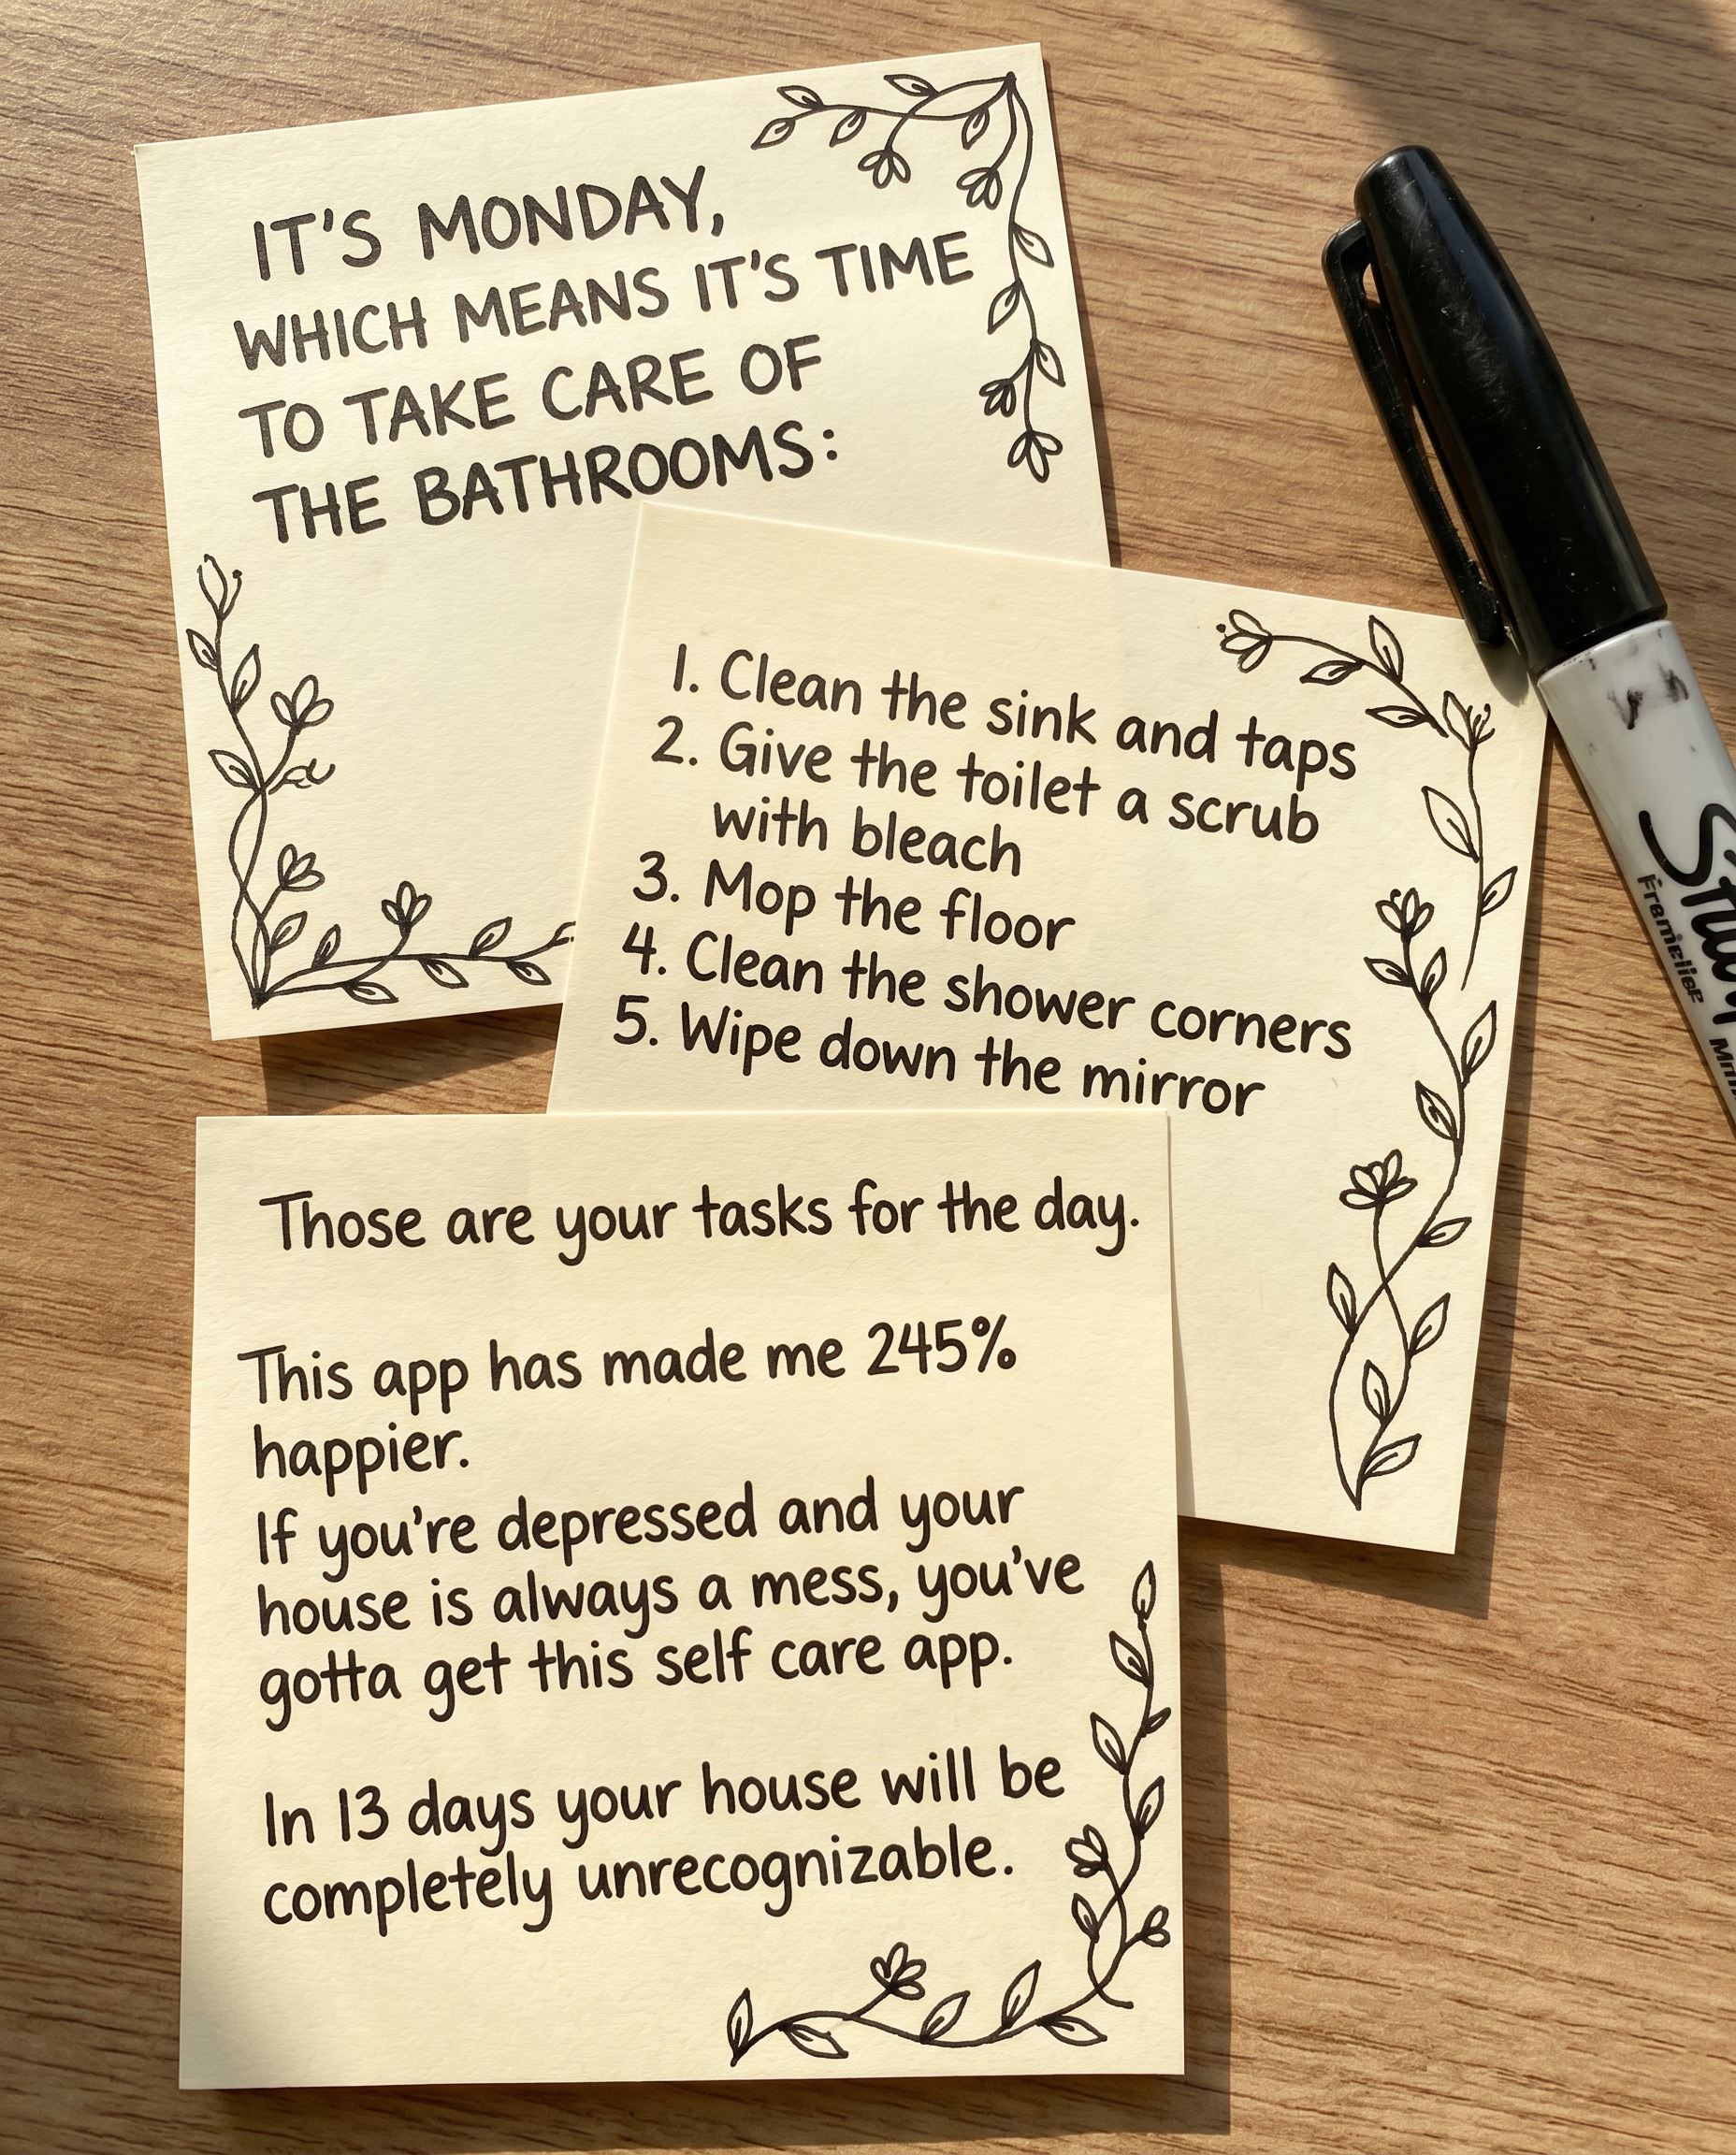 IT'S MONDAY,
WHICH MEANS IT'S TIME
TO TAKE CARE OF
THE BATHROOMS:
1. Clean the sink and taps
2. Give the toilet a scrub
with bleach
3. Mop the floor
4. Clean the shower corners
5. Wipe down the mirror
Those are your tasks for the day.
This app has made me 245%
happier.
If you're depressed and your
house is always a mess, you've
gotta get this self care app.
In 13 days your house will be
completely unrecognizable.